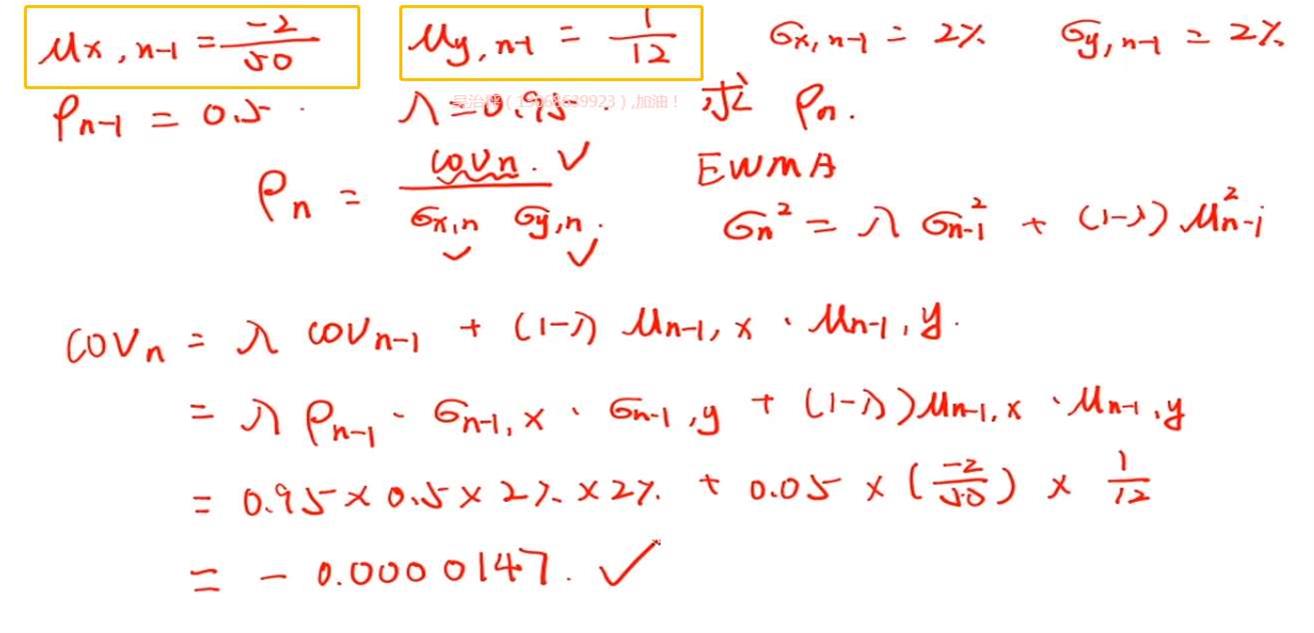 μx,n-1 = -2/50 μy,n-1 = 1/12 σx,n-1 = 2% σy,n-1 = 2%
ρn-1 = 0.5. λ=0.95. 求 ρn.
9923),加油!
ρn = covn. ✓ / σx,n ✓ σy,n. ✓
EWMA
σn² = λ σn-1² + (1-λ) μn-1²
COVn = λ COVn-1 + (1-λ) μn-1,x · μn-1,y.
= λ ρn-1 · σn-1,x · σn-1,y + (1-λ) μn-1,x · μn-1,y
= 0.95 × 0.5 × 2% × 2% + 0.05 × (-2/50) × 1/12
= - 0.0000147. ✓